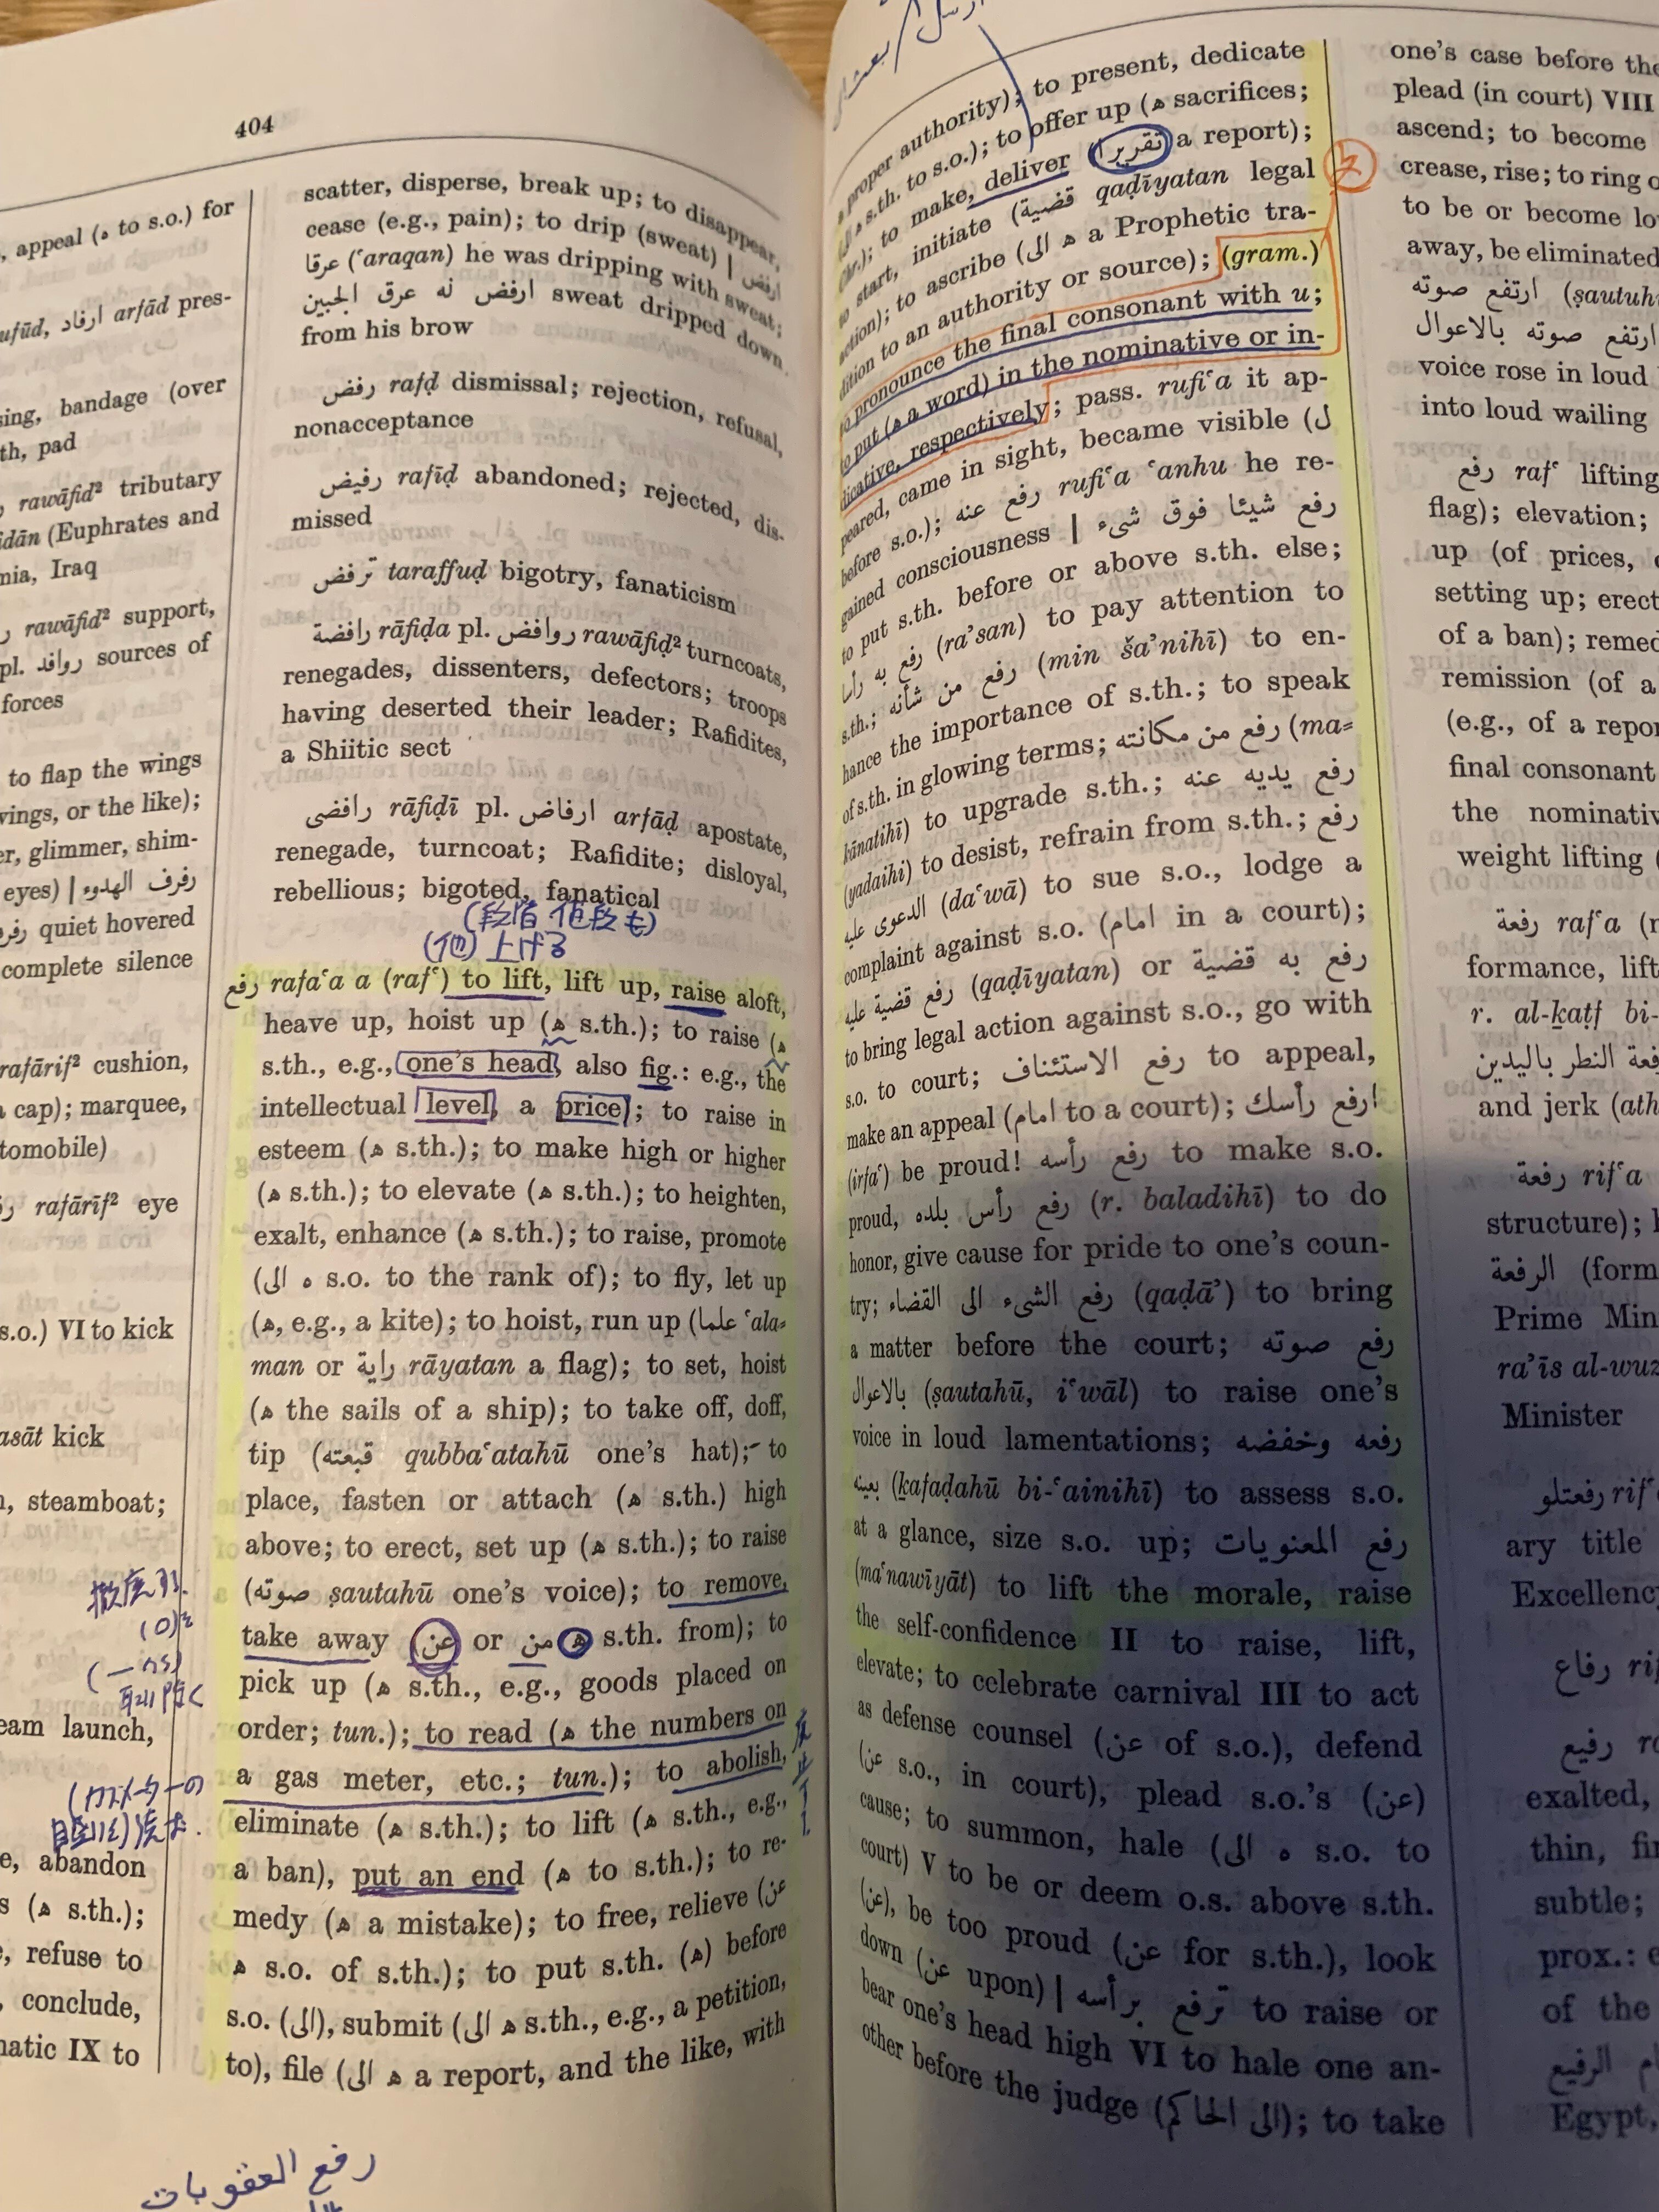 404
, appeal (ه to s.o.) for
ufūd, ارفاد arfād pres-
sing, bandage (over
th, pad
, rawāfid² tributary
idān (Euphrates and
nia, Iraq
rawāfid² support,
pl. روافد sources of
forces
to flap the wings
wings, or the like);
er, glimmer, shim-
eyes) | رفرف الهدوء
quiet hovered
complete silence
rafārif² cushion,
a cap); marquee,
tomobile)
rafārīf² eye
s.o.) VI to kick
asāt kick
, steamboat;
eam launch,
e, abandon
s (ه s.th.);
, refuse to
, conclude,
matic IX to
scatter, disperse, break up; to disappear,
cease (e.g., pain); to drip (sweat) | ارفض
عرقا (ʿaraqan) he was dripping with sweat;
ارفض له عرق الجبين sweat dripped down
from his brow
رفض rafḍ dismissal; rejection, refusal,
nonacceptance
رفيض rafīḍ abandoned; rejected, dis-
missed
ترفض taraffuḍ bigotry, fanaticism
رافضة rāfiḍa pl. روافض rawāfiḍ² turncoats,
renegades, dissenters, defectors; troops
having deserted their leader; Rafidites,
a Shiitic sect
رافضى rāfiḍī pl. ارفاض arfāḍ apostate,
renegade, turncoat; Rafidite; disloyal,
rebellious; bigoted, fanatical
(段階 値段も)
(他) 上げる
رفع rafaʿa a (rafʿ) to lift, lift up, raise aloft,
heave up, hoist up (ه s.th.); to raise (ه
s.th., e.g., one's head, also fig.: e.g., the
intellectual level, a price); to raise in
esteem (ه s.th.); to make high or higher
(ه s.th.); to elevate (ه s.th.); to heighten,
exalt, enhance (ه s.th.); to raise, promote
(ه الى s.o. to the rank of); to fly, let up
(ه, e.g., a kite); to hoist, run up (علما ʿala=
man or راية rāyatan a flag); to set, hoist
(ه the sails of a ship); to take off, doff,
tip (قبعته qubbaʿatahū one's hat); to
place, fasten or attach (ه s.th.) high
above; to erect, set up (ه s.th.); to raise
(صوته ṣautahū one's voice); to remove,
take away (عن or من ه s.th. from); to
pick up (ه s.th., e.g., goods placed on
order; tun.); to read (ه the numbers on
a gas meter, etc.; tun.); to abolish,
eliminate (ه s.th.); to lift (ه s.th., e.g.,
a ban), put an end (ه to s.th.); to re-
medy (ه a mistake); to free, relieve (عن
ه s.o. of s.th.); to put s.th. (ه) before
s.o. (الى), submit (ه الى s.th., e.g., a petition,
to), file (ه الى a report, and the like, with
取り除く
(ガスメーターの
رفع العقوبات
a proper authority); to present, dedicate
(ه الى s.th. to s.o.); to offer up (ه sacrifices;
Chr.); to make, deliver (تقريرا a report);
to start, initiate (قضية qaḍīyatan legal
action); to ascribe (ه الى a Prophetic tra-
dition to an authority or source); (gram.)
to pronounce the final consonant with u;
to put (ه a word) in the nominative or in-
dicative, respectively; pass. rufiʿa it ap-
peared, came in sight, became visible (ل
before s.o.); رفع عنه rufiʿa ʿanhu he re-
gained consciousness | رفع شيئا فوق شىء
to put s.th. before or above s.th. else;
رفع به رأسا (raʾsan) to pay attention to
s.th.; رفع من شأنه (min šaʾnihī) to en-
hance the importance of s.th.; to speak
of s.th. in glowing terms; رفع من مكانته (ma=
kānatihī) to upgrade s.th.; رفع يديه عنه
(yadaihi) to desist, refrain from s.th.; رفع
الدعوى عليه (daʿwā) to sue s.o., lodge a
complaint against s.o. (امام in a court);
رفع قضية عليه (qaḍīyatan) or رفع به قضية
to bring legal action against s.o., go with
s.o. to court; رفع الاستئناف to appeal,
make an appeal (امام to a court); ارفع رأسك
(irfaʿ) be proud! رفع رأسه to make s.o.
proud, رفع رأس بلده (r. baladihī) to do
honor, give cause for pride to one's coun-
try; رفع الشىء الى القضاء (qaḍāʾ) to bring
a matter before the court; رفع صوته
بالاعوال (ṣautahū, iʿwāl) to raise one's
voice in loud lamentations; رفعه وخفضه
بعينه (ḵafaḍahū bi-ʿainihī) to assess s.o.
at a glance, size s.o. up; رفع المعنويات
(maʿnawīyāt) to lift the morale, raise
the self-confidence II to raise, lift,
elevate; to celebrate carnival III to act
as defense counsel (عن of s.o.), defend
(عن s.o., in court), plead s.o.'s (عن)
cause; to summon, hale (ه الى s.o. to
court) V to be or deem o.s. above s.th.
(عن), be too proud (عن for s.th.), look
down (عن upon) | ترفع برأسه to raise or
bear one's head high VI to hale one an-
other before the judge (الى الحاكم); to take
one's case before the
plead (in court) VIII
ascend; to become
crease, rise; to ring o
to be or become lo
away, be eliminated
ارتفع صوته (ṣautuh
ارتفع صوته بالاعوال
voice rose in loud
into loud wailing
رفع rafʿ lifting
flag); elevation;
up (of prices,
setting up; erect
of a ban); remed
remission (of a
(e.g., of a repor
final consonant
the nominativ
weight lifting
رفعة rafʿa
formance, lift
r. al-ḵaṭf bi-
رفعة النطر باليدين
and jerk (ath
رفعة rifʿa
structure);
الرفعة (form
Prime Min
raʾīs al-wuz
Minister
رفعتلو rifʿ
ary title
Excellency
رفاع
رفيع
exalted,
thin, fi
subtle;
prox.:
of the
الرفيع
Egypt,